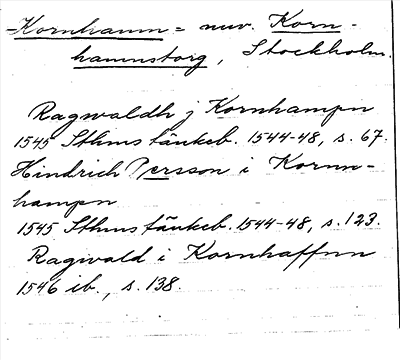 =Kornhamn= nuv. Korn-
hamnstorg, Stockholm.
Ragwaldh j Kornhampn
1545 Sthms tänkeb. 1544-48, s. 67.
Hindrich Persson i Kornn-
hampn
1545 Sthms tänkeb. 1544-48, s. 123.
Ragwald i Kornhaffnn
1546 ib., s. 138.